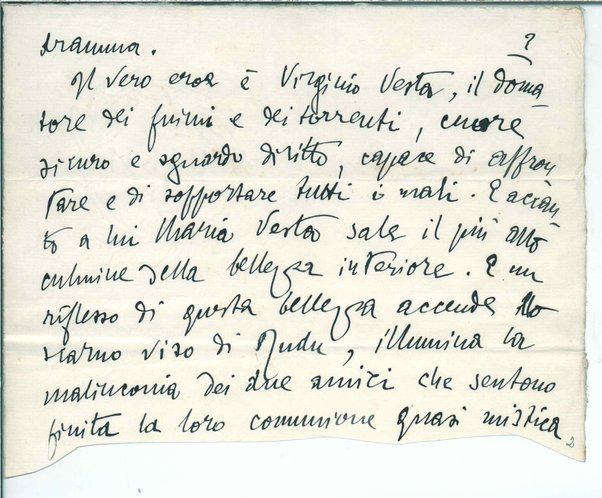 dramma. 2
Il vero eroe è Virginio Vesta, il doma
tore dei fiumi e dei torrenti, cuore
sicuro e sguardo diritto, capace di affron
tare e di sopportare tutti i mali. E accan
to a lui Maria Vesta sale il più alto
culmine della bellezza interiore. E un
riflesso di questa bellezza accende lo
scarno viso di Rudu, illumina la
malinconia dei due amici che sentono
finita la loro comunione quasi mistica
2